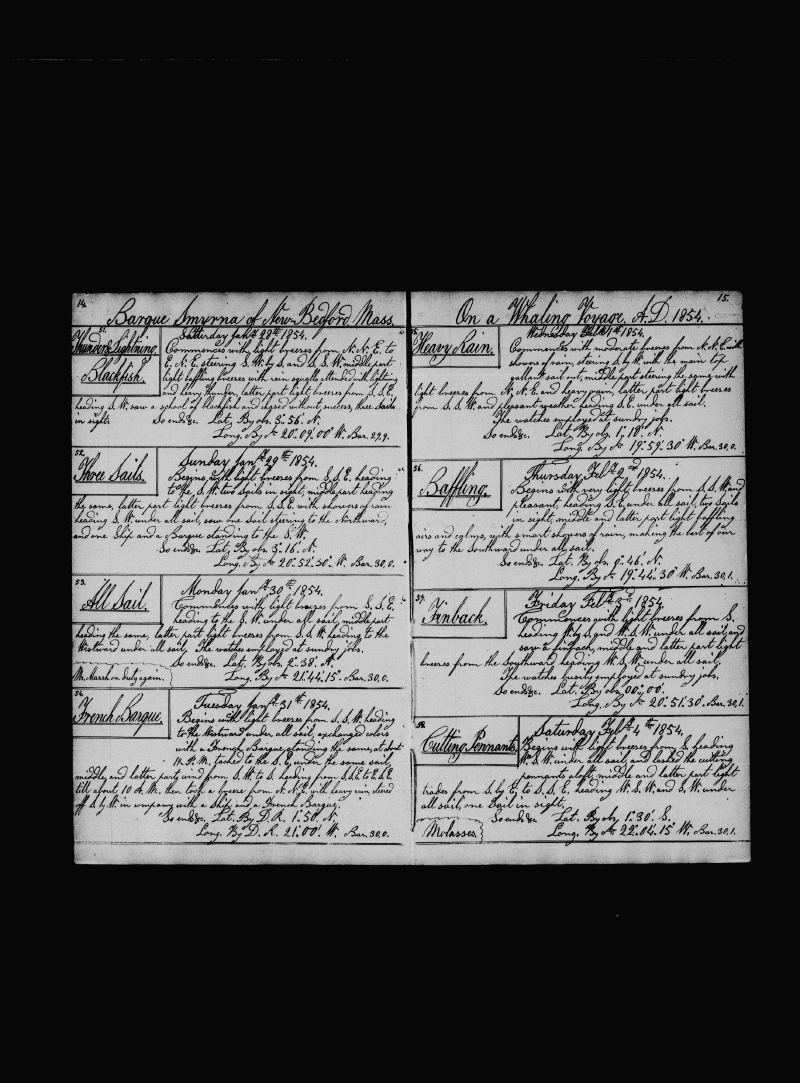 14.
Barque Smyrna of New-Bedford Mass.
51.
Thunder & Lightning.
Blackfish.
Saturday Jany. 28th 1854.
Commences with light breezes from N. N. E. to
E. N. E. steering S. W. by S. and S. S. W. middle part
light baffling breezes with rain squalls attended with lightning
and heavy thunder, latter part light breezes from S. S. E.
heading S. W. saw a school of blackfish and chased without success, three Sails
in sight. So ends &c. Lat. By obs. 3°. 56'. N.
Long. By Ar 20°. 09'. 00" W. Bar. 29,9.
52.
Three Sails.
Sunday Jany. 29th 1854.
Begins with light breezes from S. S. E. heading
to the S. W. two Sails in sight, middle part heading
the same, latter part light breezes from S. S. E. with showers of rain
heading S. W. under all sail, saw one Sail steering to the Northward,
and one Ship and a Barque standing to the S. W.
So ends &c. Lat. By obs. 3°. 16'. N.
Long. By Ar 20°. 52'. 30" W. Bar. 30,0.
53.
All Sail.
Monday Jany. 30th 1854.
Commences with light breezes from S. S. E.
heading to the S. W. under all sail, middle part
heading the same, latter part light breezes from S. S. W. heading to the
Westward under all sail, The watches employed at sundry jobs.
So ends &c. Lat. By obs. 2°. 38'. N.
Mr. Marsh on duty again.
Long. By Ar 21°. 44'. 15" W. Bar. 30,0.
54.
French Barque.
Tuesday Jany. 31st 1854.
Begins with light breezes from S. S. W. heading
to the Westward under all sail, exchanged colors
with a French Barque standing the same, at about
P. M. tacked to the S. E. under the same sail,
middle, and latter parts wind from S. W. to S. heading from S. S. E. to E. S. E.
till about 10 A. M. then took a breeze from N. N. E. with heavy rain, steered
off S. by W. in company with a Ship and a French Barque.
So ends &c. Lat. By D. R. 1°. 50'. N.
Long. By D. R. 21°. 00'. W. Bar. 30,0.
15.
On a Whaling Voyage, A. D. 1854.
Heavy Rain.
Wednesday 1st 1854.
Commences with moderate breezes from N. N. E. with
showers of rain, steering S. by W. with the main top
gallant sail out, middle part steering the same with
light breezes from N. N. E. and heavy rain, latter part light breezes
from S. S. W. and pleasant weather heading S. E. under all sail.
The watches employed at sundry jobs.
So ends &c. Lat. By obs. 1°. 18'. N.
Long. By Ar 19°. 59'. 30" W. Bar. 30,0.
56.
Baffling.
Thursday Feby. 2nd 1854.
Begins with very light breezes from S. S. W. and
pleasant, heading S. E. under all sail, two Sails
in sight, middle and latter part light baffling
airs and calms, with smart showers of rain, making the best of our
way to the Southward under all sail.
So ends &c. Lat. By obs. 0°. 46'. N.
Long. By Ar 19°. 44'. 30" W. Bar. 30,1.
57.
Finback.
Friday Feby. 3rd 1854.
Commences with light breezes from S.
heading W. by S. and W. S. W. under all sail, and
saw a finback, middle and latter part light
breezes from the Southward heading W. S. W. under all sail.
The watches busily employed at sundry jobs.
So ends &c. Lat. By obs. 00°. 00'.
Long. By Ar 20°. 51'. 30" Bar. 30,1.
58.
Cutting Pennants.
Saturday Feby. 4th 1854.
Begins with light breezes from S. heading
W. S. W. under all sail, and lashed the cutting
pennants aloft, middle and latter part light
trades from S. by E. to S. S. E. heading W. S. W. and S. W. under
all sail, one Sail in sight.
So ends &c. Lat. By obs. 1°. 30'. S.
Molasses.
Long. By Ar 22°. 04'. 15" W. Bar. 30,1.